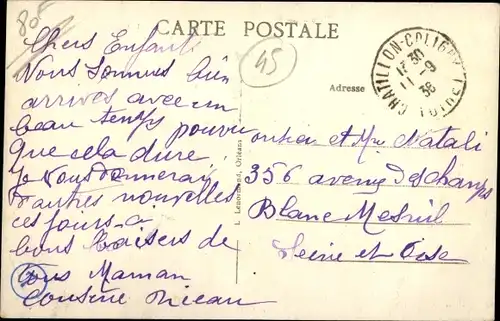 80f
CARTE POSTALE
45
CHATILLON-COLIGNY
13 30
11-9
38
Adresse
L. Lenormand, Orléans
Chers Enfants
Nous sommes bien
arrivés avec un
beau temps pourvu
que cela dure
Je vous donnerai
d'autres nouvelles
ces jours-ci
bons baisers de
tous Maman
cousine
et Mme Natali
356 avenue des champs
Blanc Mesnil
Seine et Oise